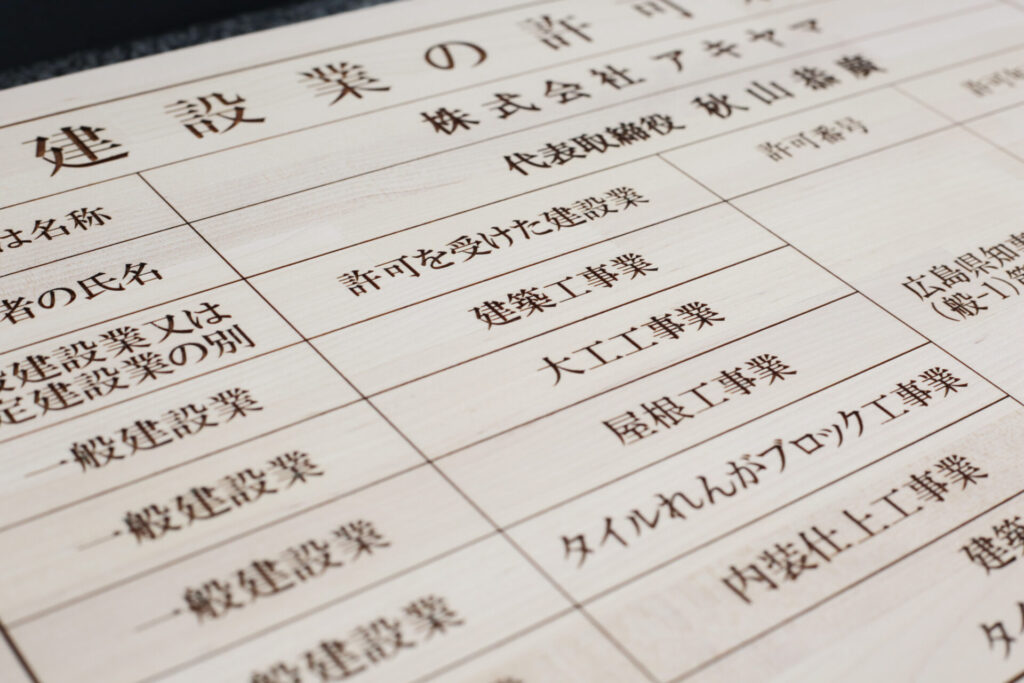 建設業の許可
株式会社アキヤマ
は名称
代表取締役 秋山
者の氏名
許可を受けた建設業
許可番号
許可
建設業又は
定建設業の別
一般建設業
建築工事業
広島県知事
(般-1)第
一般建設業
大工工事業
一般建設業
屋根工事業
般建設業
タイルれんがブロック工事業
内装仕上工事業
建築
タイ